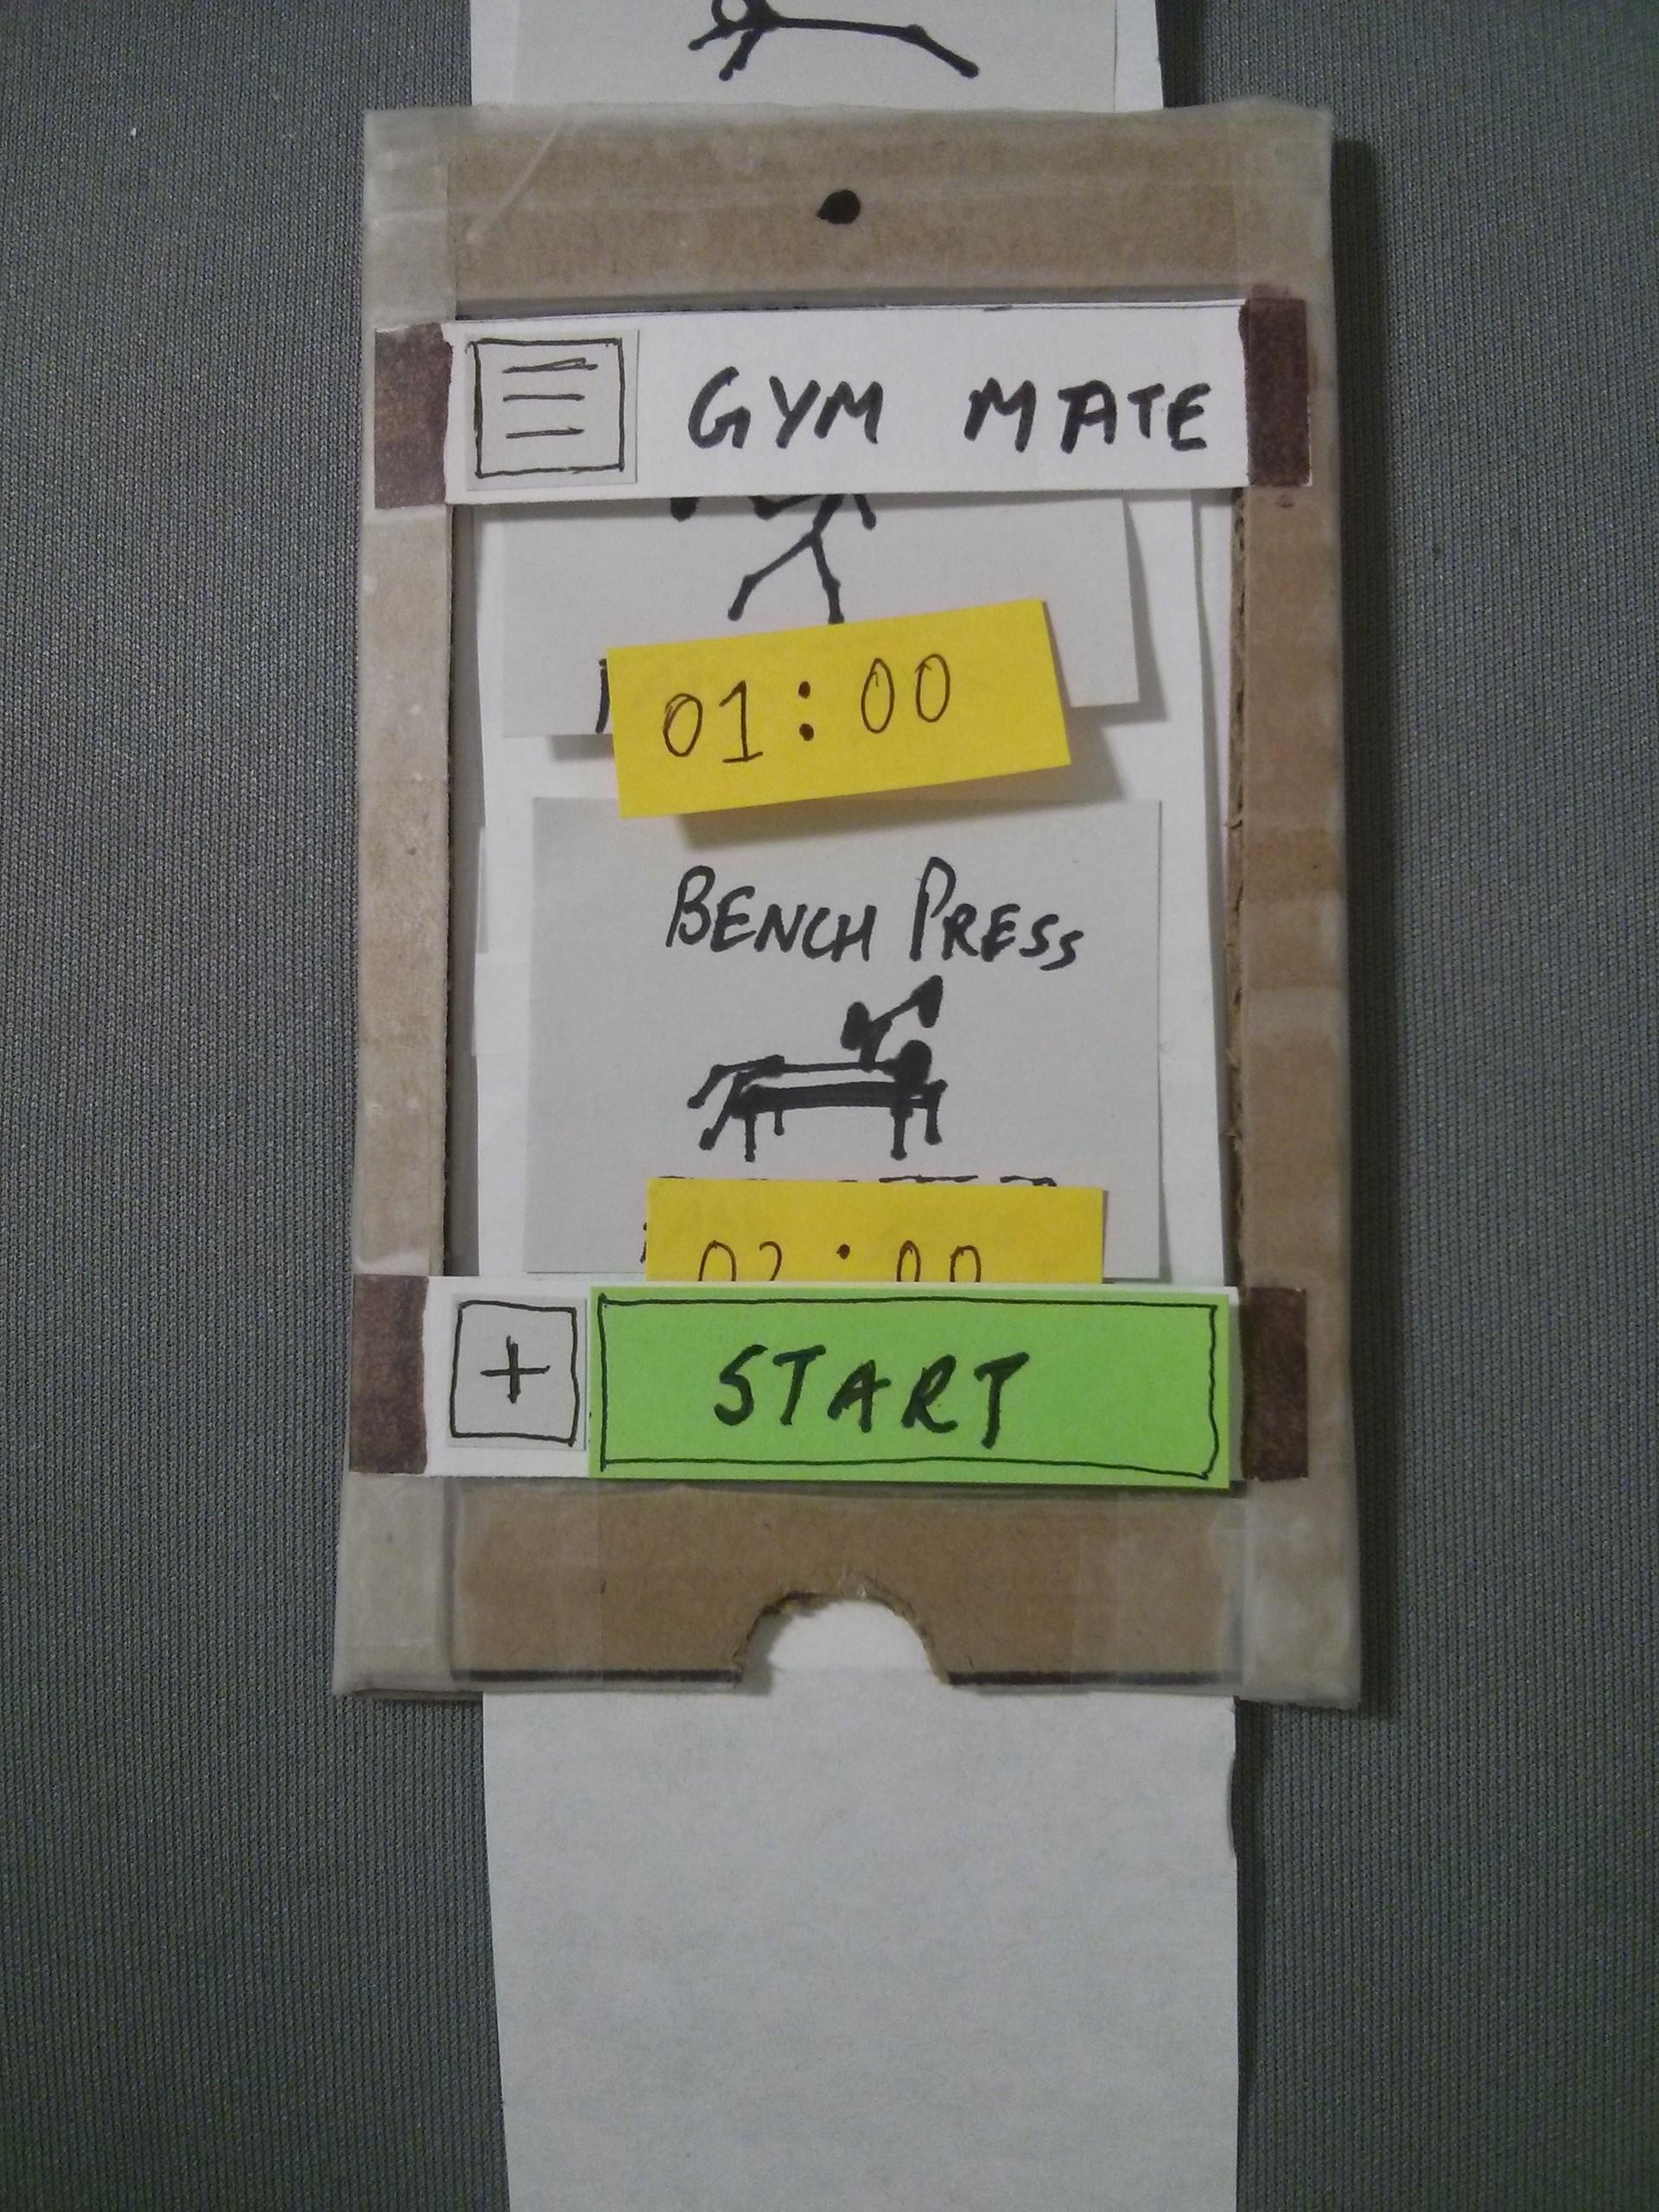 GYM MATE
01:00
BENCH PRESS
02:00
+
START